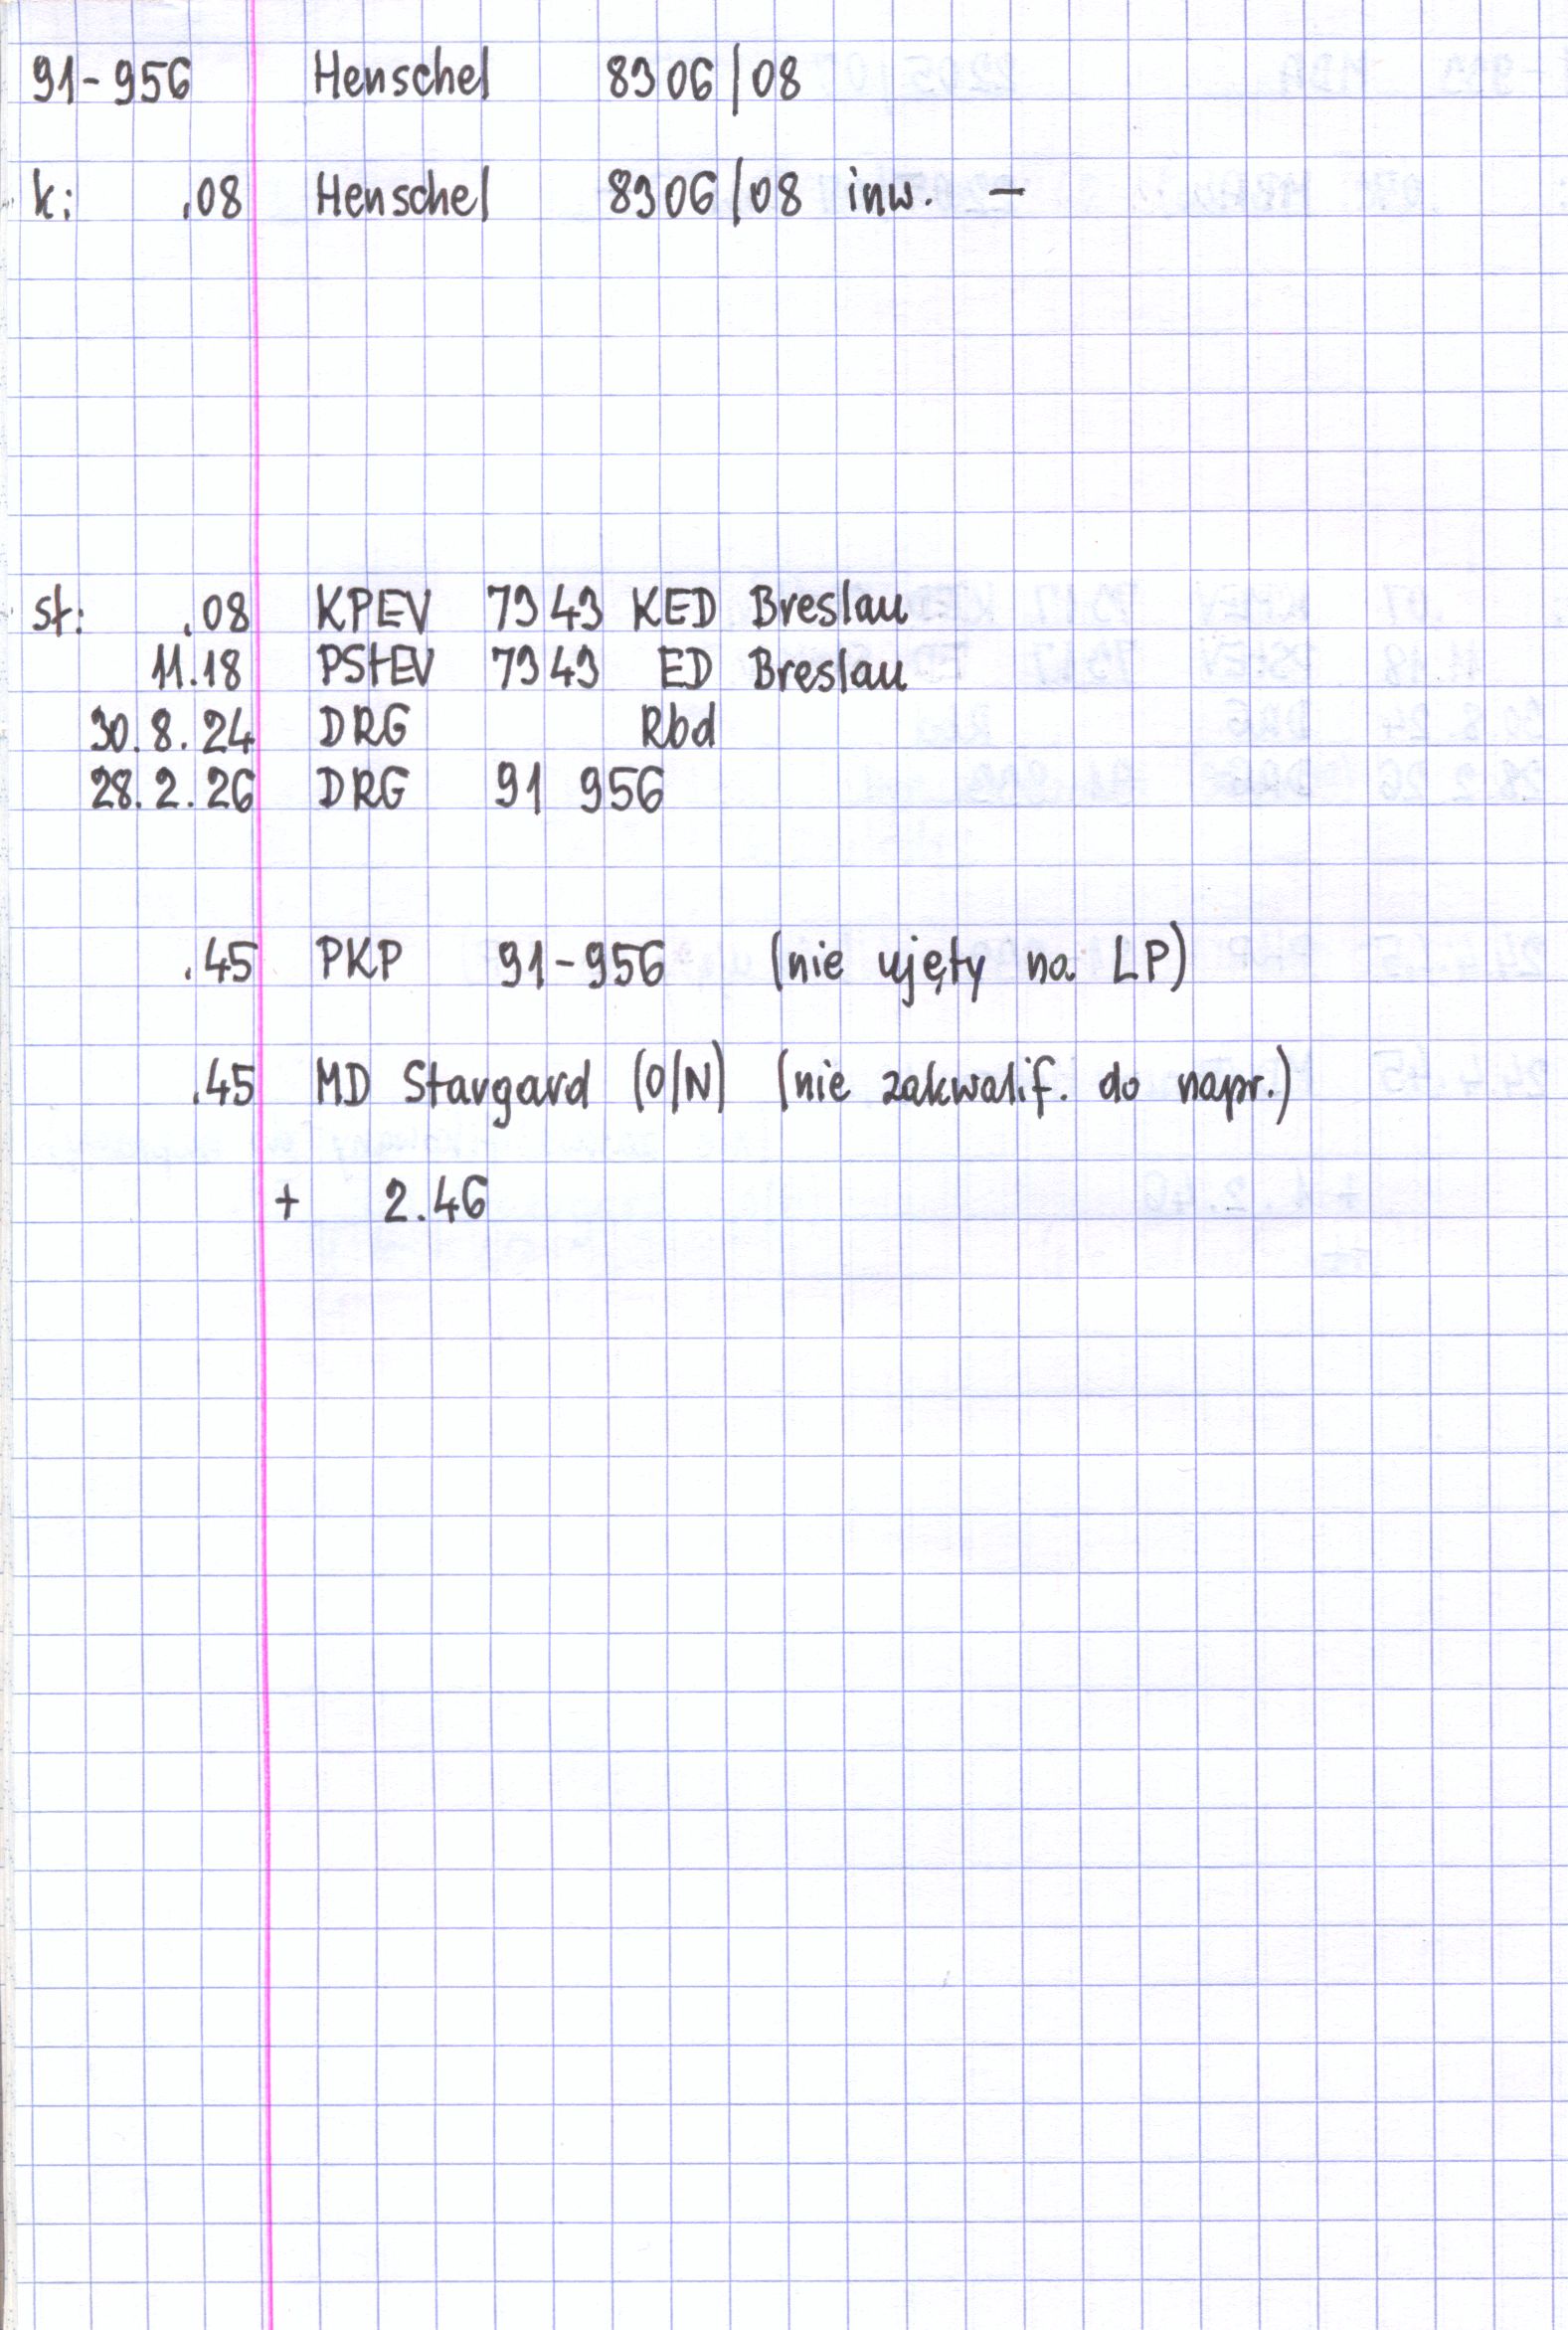 91-956 Henschel 8906/08
k: .08 Henschel 8906/08 inw. –
st: .08 KPEV 7943 KED Breslau
11.18 PStEV 7943 ED Breslau
30.8.24 DRG Rbd
28.2.26 DRG 91 956
.45 PKP 91-956 (nie ujęty na LP)
.45 MD Stargard (O/N) (nie zakwalif. do napr.)
+ 2.46